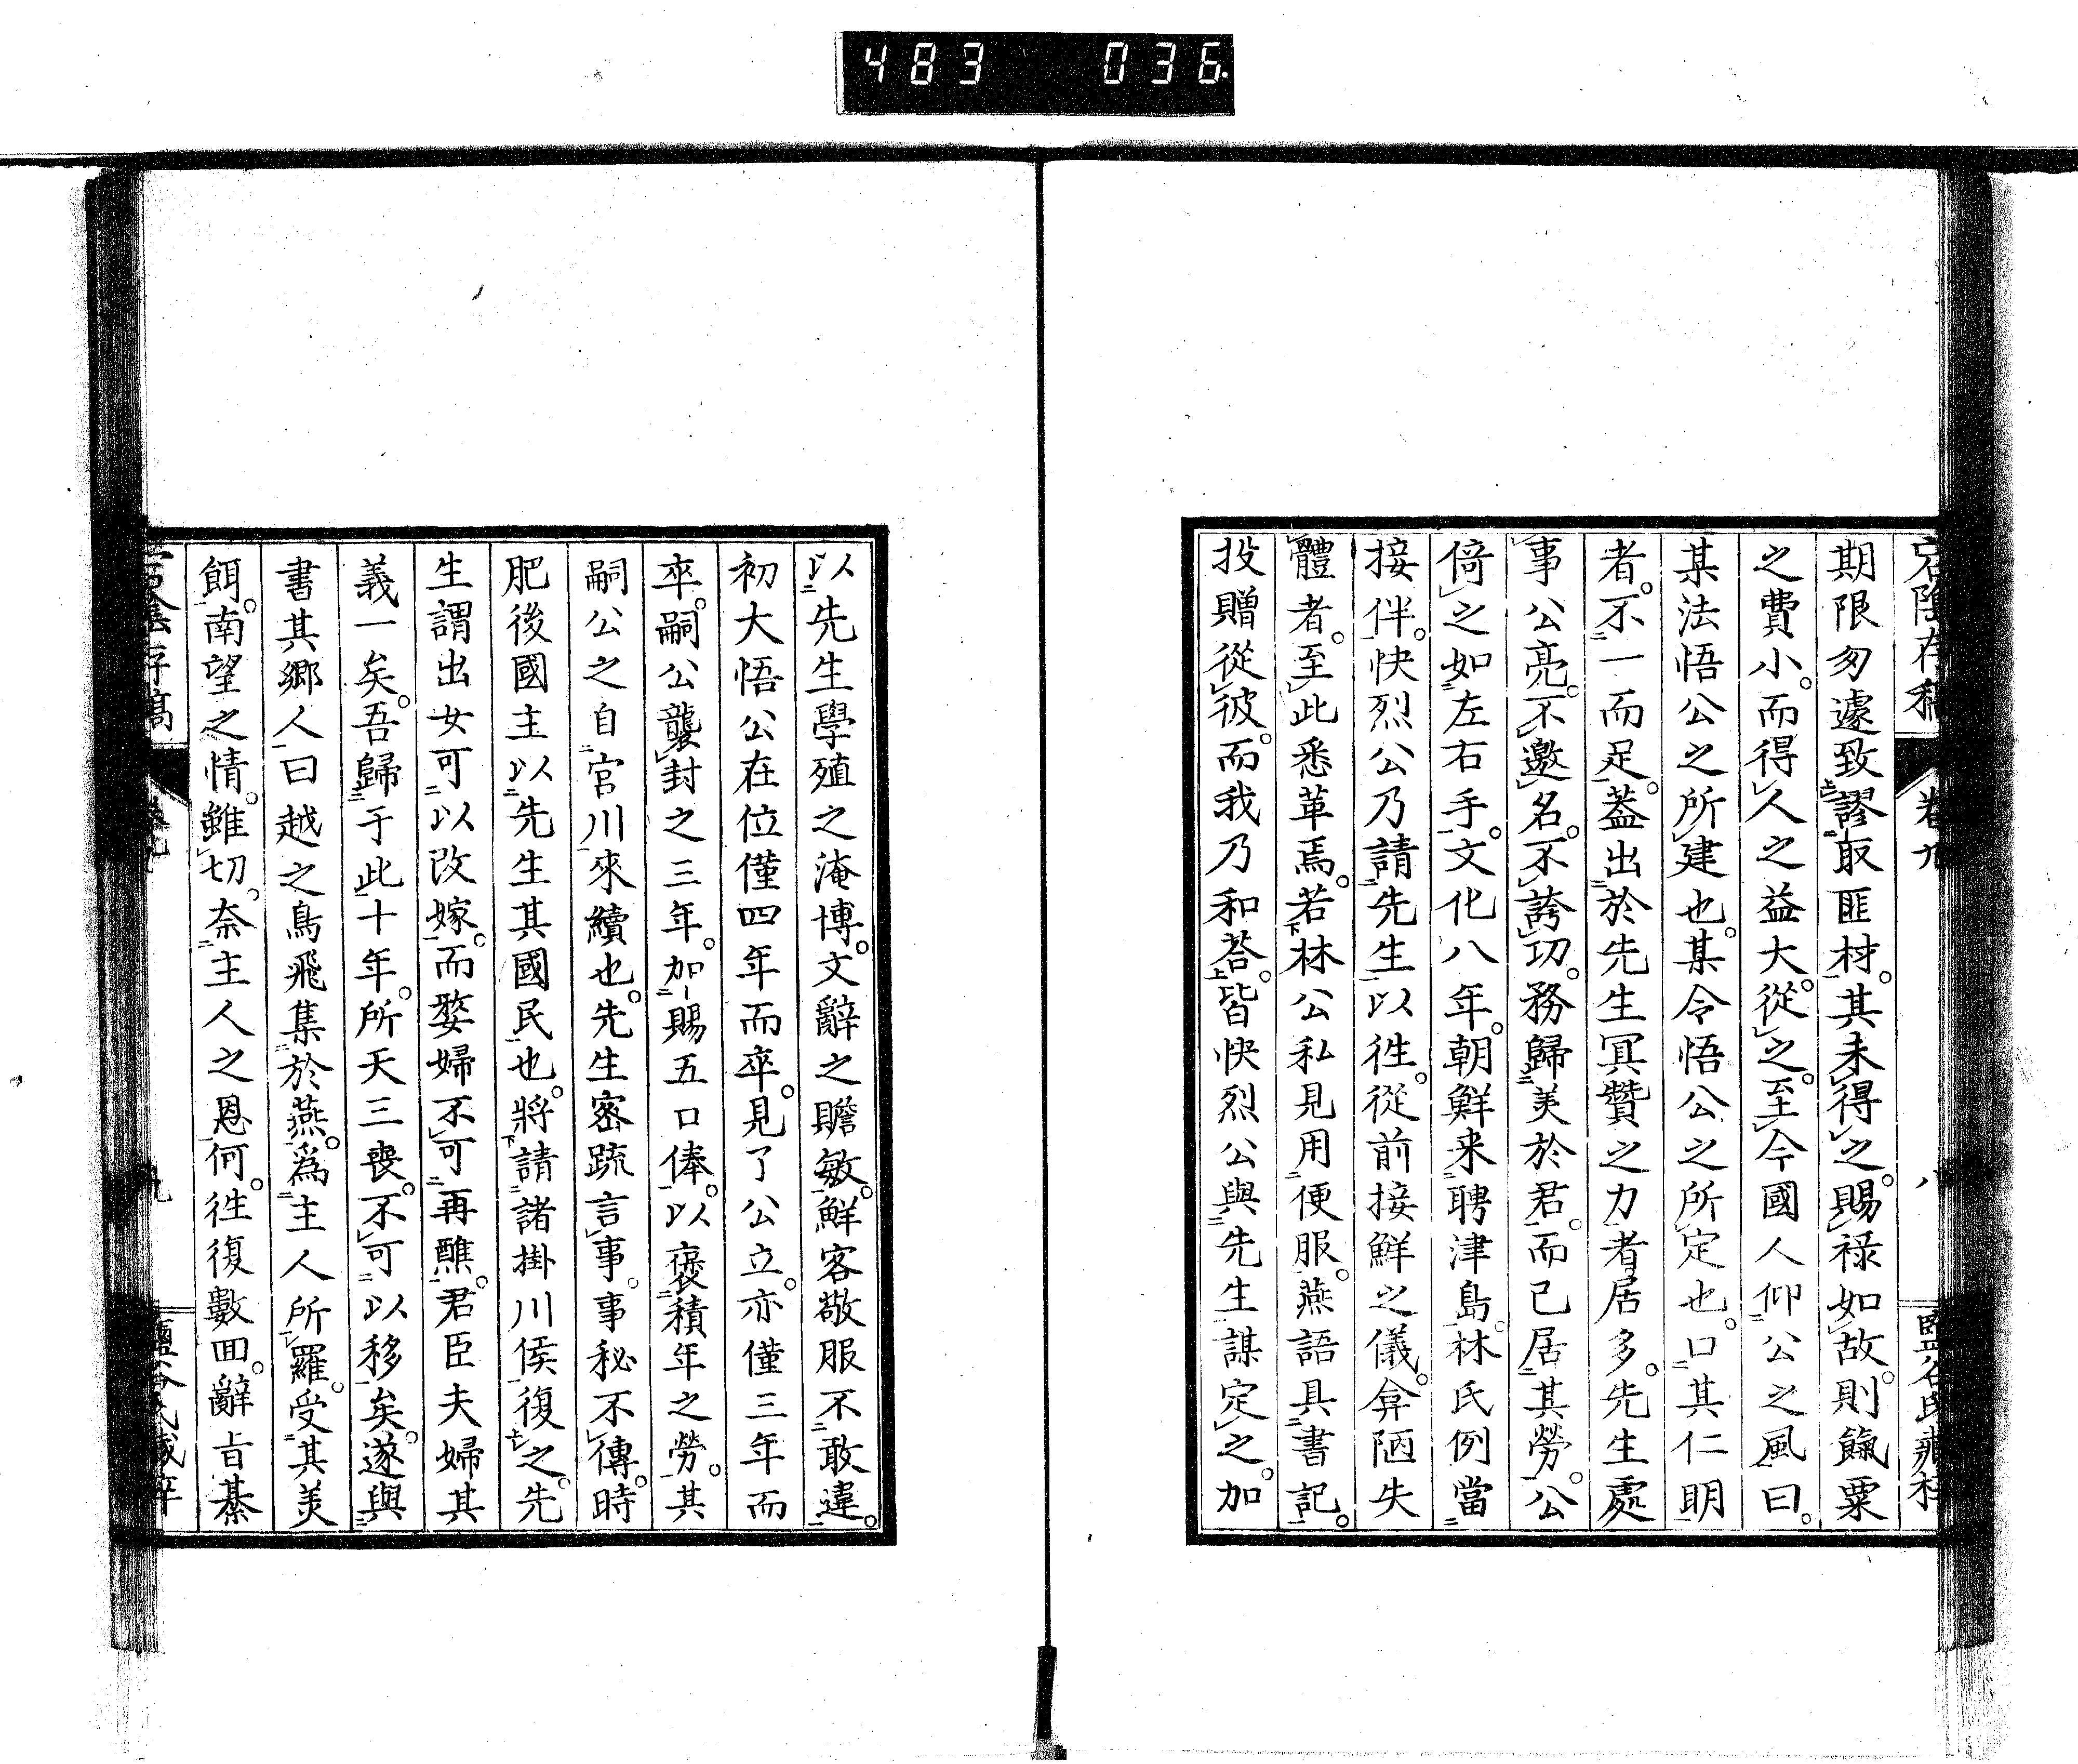 483 036
宕陰存稿 卷九 八
期限匆遽致謬取匪材。其未得之。賜祿如故。則餼粟
之費小。而得人之益大。從之。至今國人仰公之風曰。
某法悟公之所建也。某令悟公之所定也。口其仁明
者。不一而足。葢出於先生冥贊之力者居多。先生處
事公亮。不邀名。不誇功。務歸美於君。而已居其勞。公
倚之如左右手。文化八年。朝鮮来聘津島。林氏例當
接伴。快烈公乃請先生以徃。從前接鮮之儀。弇陋失
體者。至此悉革焉。若林公私見用便服。燕語具書記。
投贈從彼。而我乃和荅。皆快烈公與先生謀定之。加
以先生學殖之淹博。文辭之贍敏。鮮客敬服不敢違。
初大悟公在位僅四年而卒。見了公立。亦僅三年而
卒。嗣公襲封之三年。加賜五口俸。以褒積年之勞。其
嗣公之自宮川來續也。先生密疏言事。事秘不傳。時
肥後國主以先生其國民也。將請諸掛川侯復之。先
生謂出女可以改嫁。而婺婦不可再醮。君臣夫婦其
義一矣。吾歸于此十年。所天三喪。不可以移矣。遂與
書其鄉人曰越之鳥飛集於燕。爲主人所羅。受其美
餌。南望之情。雖切。奈主人之恩何。徃復數回。辭旨綦